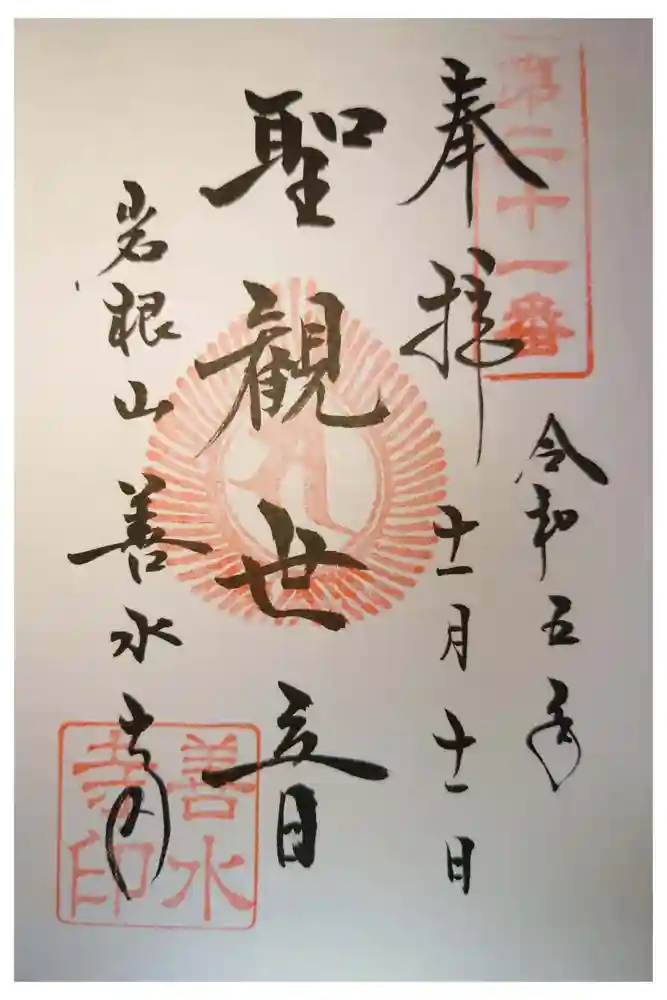 第二十一番
令和五年
奉拝
十一月十一日
聖観世音
岩根山善水寺
善水
寺印